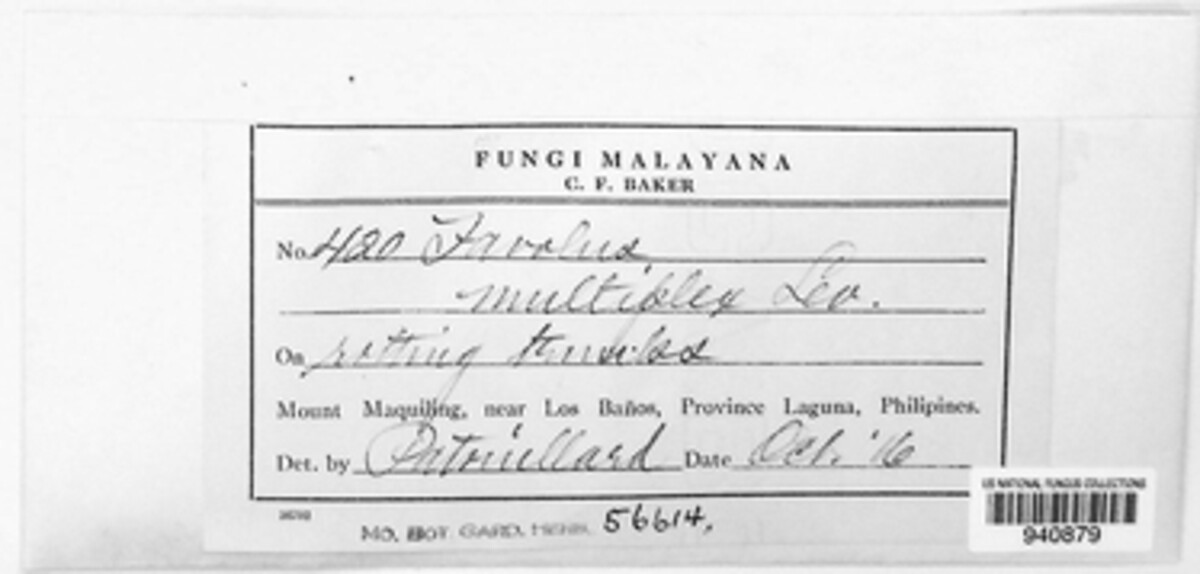 FUNGI MALAYANA
C. F. BAKER
No. 420 Favolus
multiplex Lev.
On rotting trunks
Mount Maquiling, near Los Baños, Province Laguna, Philipines.
Det. by Patouillard Date Oct. '16
MO. BOT. GARD. HERB. 56614.
US NATIONAL FUNGUS COLLECTIONS
940879